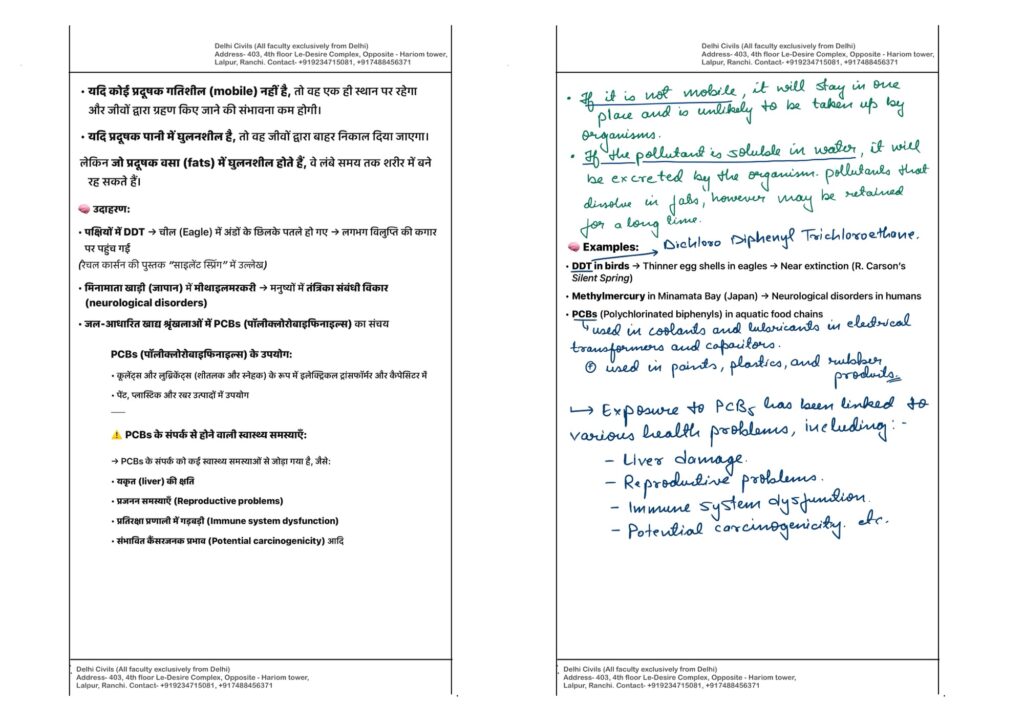 Delhi Civils (All faculty exclusively from Delhi)
Address- 403, 4th floor Le-Desire Complex, Opposite - Hariom tower,
Lalpur, Ranchi. Contact- +919234715081, +917488456371
• यदि कोई प्रदूषक गतिशील (mobile) नहीं है, तो वह एक ही स्थान पर रहेगा
और जीवों द्वारा ग्रहण किए जाने की संभावना कम होगी।
• यदि प्रदूषक पानी में घुलनशील है, तो वह जीवों द्वारा बाहर निकाल दिया जाएगा।
लेकिन जो प्रदूषक वसा (fats) में घुलनशील होते हैं, वे लंबे समय तक शरीर में बने
रह सकते हैं।
🧠 उदाहरण:
• पक्षियों में DDT → चील (Eagle) में अंडों के छिलके पतले हो गए → लगभग विलुप्ति की कगार
पर पहुंच गई
(रेचल कार्सन की पुस्तक “साइलेंट स्प्रिंग” में उल्लेख)
• मिनामाता खाड़ी (जापान) में मीथाइलमरकरी → मनुष्यों में तंत्रिका संबंधी विकार
(neurological disorders)
• जल-आधारित खाद्य श्रृंखलाओं में PCBs (पॉलीक्लोरोबाइफिनाइल्स) का संचय
PCBs (पॉलीक्लोरोबाइफिनाइल्स) के उपयोग:
• कूलेंट्स और लुब्रिकेंट्स (शीतलक और स्नेहक) के रूप में इलेक्ट्रिकल ट्रांसफॉर्मर और कैपेसिटर में
• पेंट, प्लास्टिक और रबर उत्पादों में उपयोग
⚠️ PCBs के संपर्क से होने वाली स्वास्थ्य समस्याएँ:
→ PCBs के संपर्क को कई स्वास्थ्य समस्याओं से जोड़ा गया है, जैसे:
• यकृत (liver) की क्षति
• प्रजनन समस्याएँ (Reproductive problems)
• प्रतिरक्षा प्रणाली में गड़बड़ी (Immune system dysfunction)
• संभावित कैंसरजनक प्रभाव (Potential carcinogenicity) आदि
Delhi Civils (All faculty exclusively from Delhi)
Address- 403, 4th floor Le-Desire Complex, Opposite - Hariom tower,
Lalpur, Ranchi. Contact- +919234715081, +917488456371
Delhi Civils (All faculty exclusively from Delhi)
Address- 403, 4th floor Le-Desire Complex, Opposite - Hariom tower,
Lalpur, Ranchi. Contact- +919234715081, +917488456371
• If it is not mobile, it will stay in one
place and is unlikely to be taken up by
organisms.
• If the pollutant is soluble in water, it will
be excreted by the organism. pollutants that
dissolve in fats, however may be retained
for a long time.
🧠 Examples: → Dichloro Diphenyl Trichloroethane.
• DDT in birds → Thinner egg shells in eagles → Near extinction (R. Carson's
Silent Spring)
• Methylmercury in Minamata Bay (Japan) → Neurological disorders in humans
• PCBs (Polychlorinated biphenyls) in aquatic food chains
↳ used in coolants and lubricants in electrical
transformers and capacitors.
⊕ used in paints, plastics, and rubber
products.
↳ Exposure to PCBs has been linked to
various health problems, including:-
- Liver damage.
- Reproductive problems.
- Immune system dysfunction.
- Potential carcinogenicity. etc.
Delhi Civils (All faculty exclusively from Delhi)
Address- 403, 4th floor Le-Desire Complex, Opposite - Hariom tower,
Lalpur, Ranchi. Contact- +919234715081, +917488456371